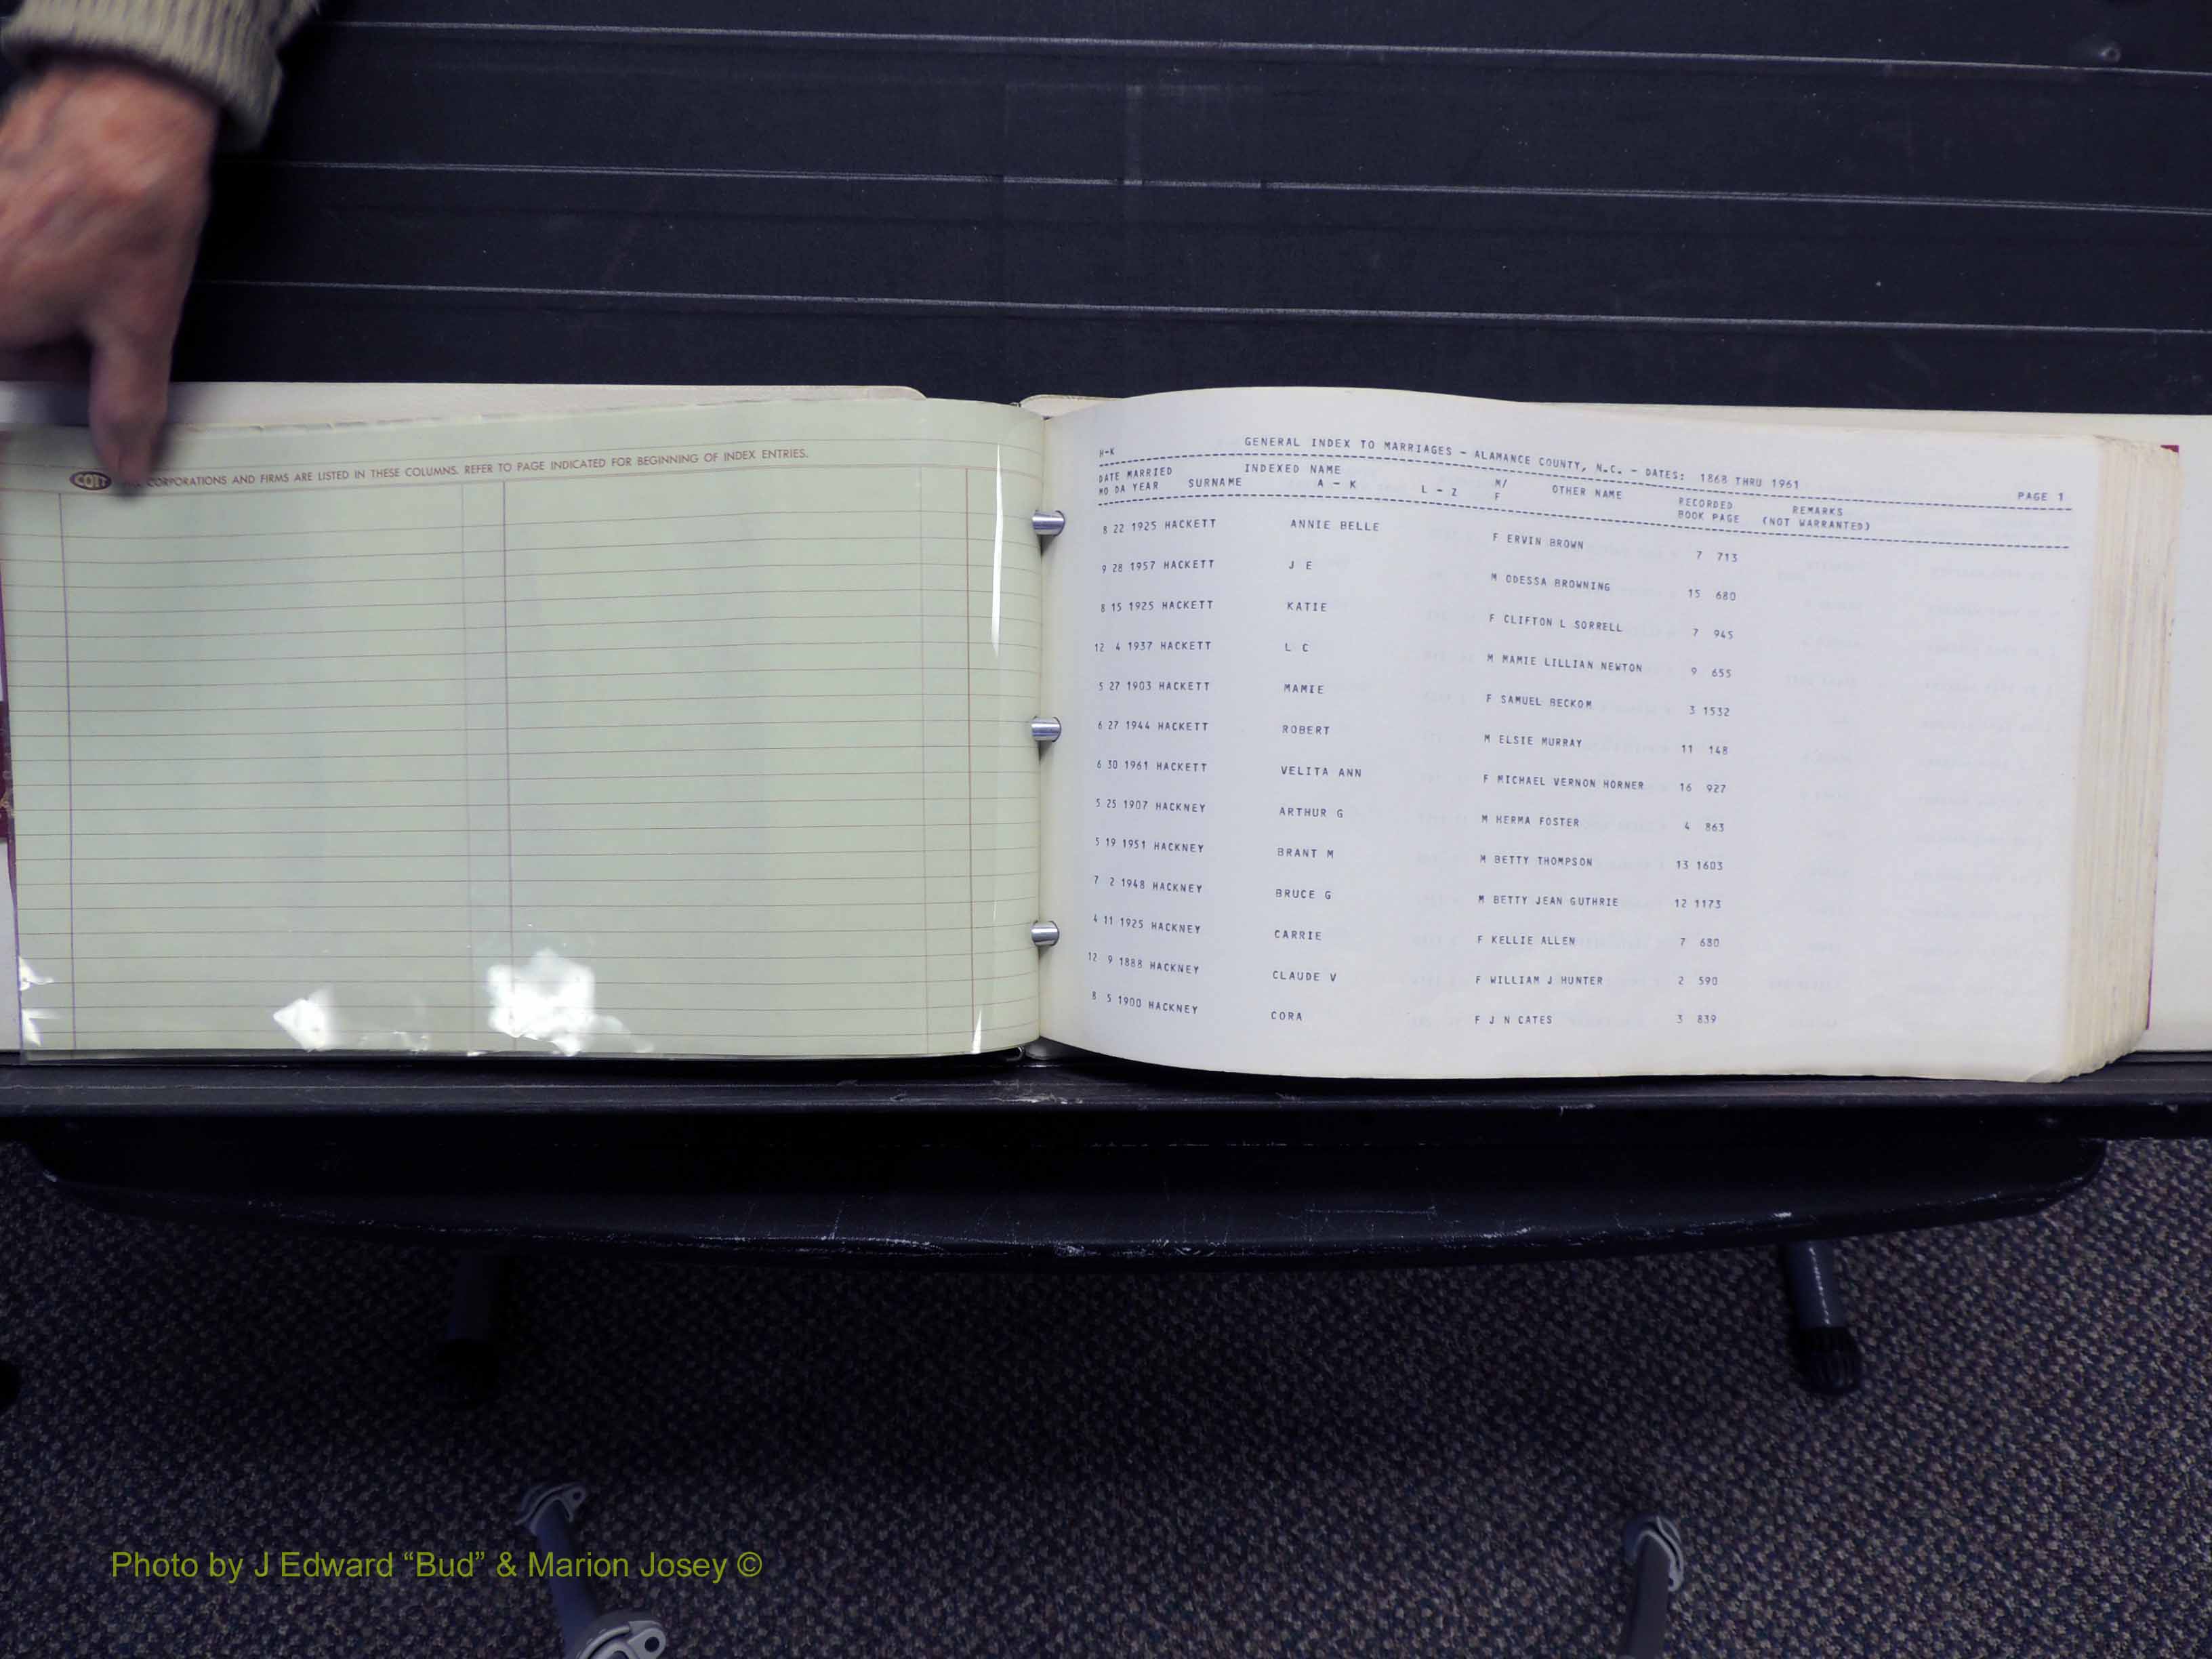 COTT
CORPORATIONS AND FIRMS ARE LISTED IN THESE COLUMNS. REFER TO PAGE INDICATED FOR BEGINNING OF INDEX ENTRIES.
H-K GENERAL INDEX TO MARRIAGES - ALAMANCE COUNTY, N.C. - DATES: 1868 THRU 1961 PAGE 1
DATE MARRIED INDEXED NAME M/ OTHER NAME RECORDED REMARKS
MO DA YEAR SURNAME A - K L - Z F BOOK PAGE (NOT WARRANTED)
8 22 1925 HACKETT ANNIE BELLE F ERVIN BROWN 7 713
9 28 1957 HACKETT J E M ODESSA BROWNING 15 680
8 15 1925 HACKETT KATIE F CLIFTON L SORRELL 7 945
12 4 1937 HACKETT L C M MAMIE LILLIAN NEWTON 9 655
5 27 1903 HACKETT MAMIE F SAMUEL BECKOM 3 1532
6 27 1944 HACKETT ROBERT M ELSIE MURRAY 11 148
6 30 1961 HACKETT VELITA ANN F MICHAEL VERNON HORNER 16 927
5 25 1907 HACKNEY ARTHUR G M HERMA FOSTER 4 863
5 19 1951 HACKNEY BRANT M M BETTY THOMPSON 13 1603
7 2 1948 HACKNEY BRUCE G M BETTY JEAN GUTHRIE 12 1173
4 11 1925 HACKNEY CARRIE F KELLIE ALLEN 7 680
12 9 1888 HACKNEY CLAUDE V F WILLIAM J HUNTER 2 590
8 5 1900 HACKNEY CORA F J N CATES 3 839
Photo by J Edward “Bud” & Marion Josey ©